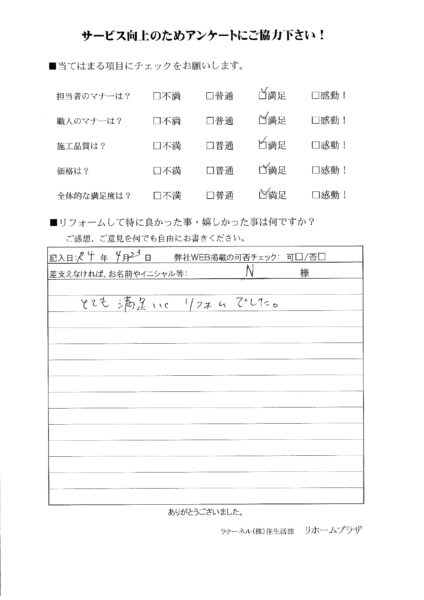 サービス向上のためアンケートにご協力下さい！
■当てはまる項目にチェックをお願いします。
担当者のマナーは？ □不満 □普通 ☑満足 □感動！
職人のマナーは？ □不満 □普通 ☑満足 □感動！
施工品質は？ □不満 □普通 ☑満足 □感動！
価格は？ □不満 □普通 ☑満足 □感動！
全体的な満足度は？ □不満 □普通 ☑満足 □感動！
■リフォームして特に良かった事・嬉しかった事は何ですか？
ご感想、ご意見を何でも自由にお書きください。
記入日：R4 年 4月23日 弊社WEB掲載の可否チェック： 可□/否□
差支えなければ、お名前やイニシャル等： N 様
とても 満足いく リフォームでした。
ありがとうございました。
ラクーネル（株）住生活部 リホームプラザ